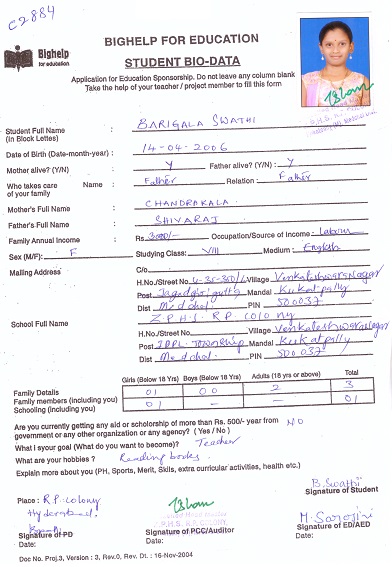 C2884
Bighelp
for education
BIGHELP FOR EDUCATION
STUDENT BIO-DATA
Application for Education Sponsorship. Do not leave any column blank
Take the help of your teacher / project member to fill this form
Student Full Name : BARIGALA SWATHI
(in Block Letters)
Date of Birth (Date-month-year) : 14-04-2006
Mother alive? (Y/N) : Y Father alive? (Y/N) : Y
Who takes care Name : Father Relation : Father
of your family
Mother's Full Name : CHANDRAKALA
Father's Full Name : SHIVARAJ
Family Annual Income : Rs. 3000/- Occupation/Source of Income : Labour
Sex (M/F) : F Studying Class: VIII Medium : English
Mailing Address C/o
H.No./Street No. 4-35-350/1 Village Venkateshwarsnagar
Post Jagadgirigutta Mandal Kukatpally
Dist Medchal PIN 500037
School Full Name : Z.P.H.S. R.P colony
H.No./Street No. Village Venkateshwarsnagar
Post IDPL Township Mandal Kukatpally
Dist Medchal PIN 500037
Girls (Below 18 Yrs) Boys (Below 18 Yrs) Adults (18 yrs or above) Total
Family Details
Family members (including you) 01 00 2 3
Schooling (including you) 01 - - 01
Are you currently getting any aid or scholarship of more than Rs. 500/- year from NO
government or any other organization or any agency? ( Yes / No )
What I your goal (What do you want to become)? Teacher
What are your hobbies ? Reading books.
Explain more about you (PH, Sports, Merit, Skils, extra curricular activities, health etc.)
B. Swathi
Signature of Student
Place : R.P. colony
Hyderabad.
M. Sarojini
Signature of PD Signature of PCC/Auditor Signature of ED/AED
Date: Date: Date:
Doc No. Proj.3, Version : 3, Rev.0, Rev. Dt. : 16-Nov-2004